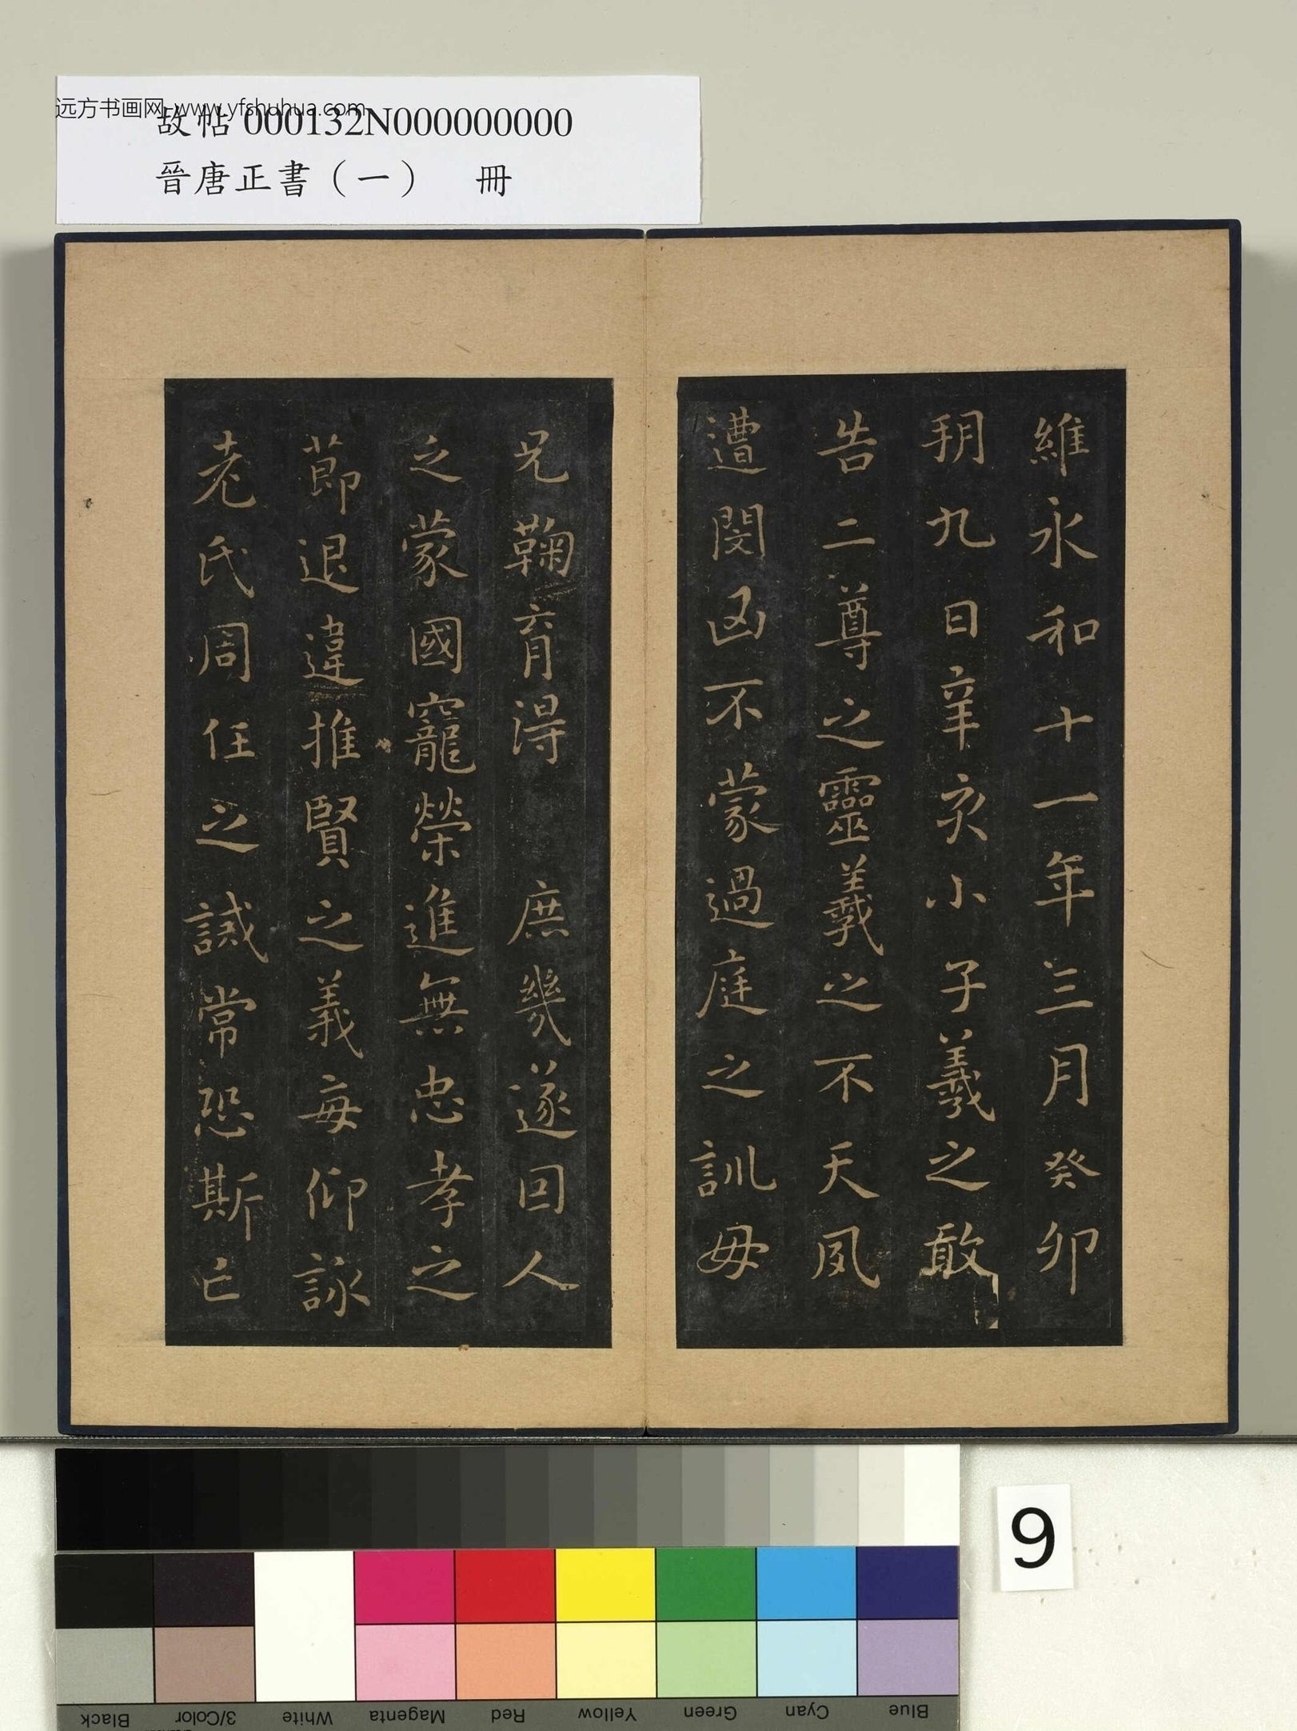 远方书画网 www.yfshuhua.com
故帖 000132N000000000
晉唐正書（一） 冊
維永和十一年三月癸卯
朔九日辛亥小子羲之敢
告二尊之靈羲之不天夙
遭閔凶不蒙過庭之訓母
兄鞠育得 庶幾遂因人
之蒙國寵榮進無忠孝之
節退違推賢之義每仰詠
老氏周任之誡常恐斯亡
9
Black
3/Color
White
Magenta
Red
Yellow
Green
Cyan
Blue